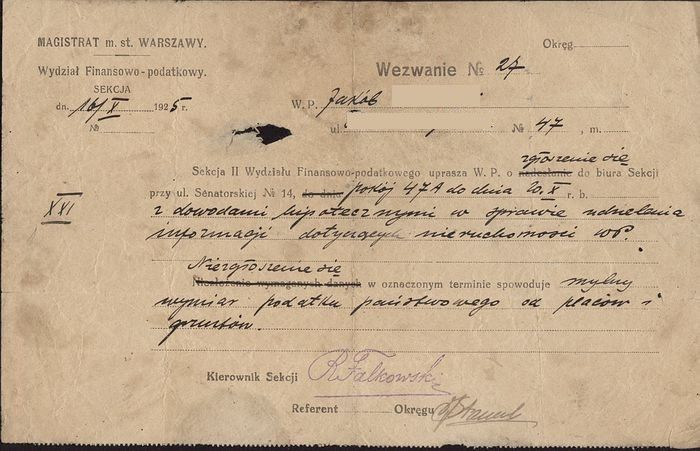 MAGISTRAT m. st. WARSZAWY.
Wydział Finansowo-podatkowy.
SEKCJA
dn. 10/X 1925 r.
№
Okręg
Wezwanie № 27
W. P. Jakób
ul. № 47, m.
zgłoszenie się
Sekcja II Wydziału Finansowo-podatkowego uprasza W. P. o nadesłanie do biura Sekcji
przy ul. Senatorskiej № 14, do dnia pokój 47A do dnia 20.X r. b.
XXI
z dowodami hipotecznymi w sprawie udzielenia
informacji dotyczących nieruchomości WP.
Niezgłoszenie się
Niezłożenie wymaganych danych w oznaczonym terminie spowoduje mylny
wymiar podatku państwowego od placów i
gruntów.
Kierownik Sekcji R Falkowski
Referent Okręgu